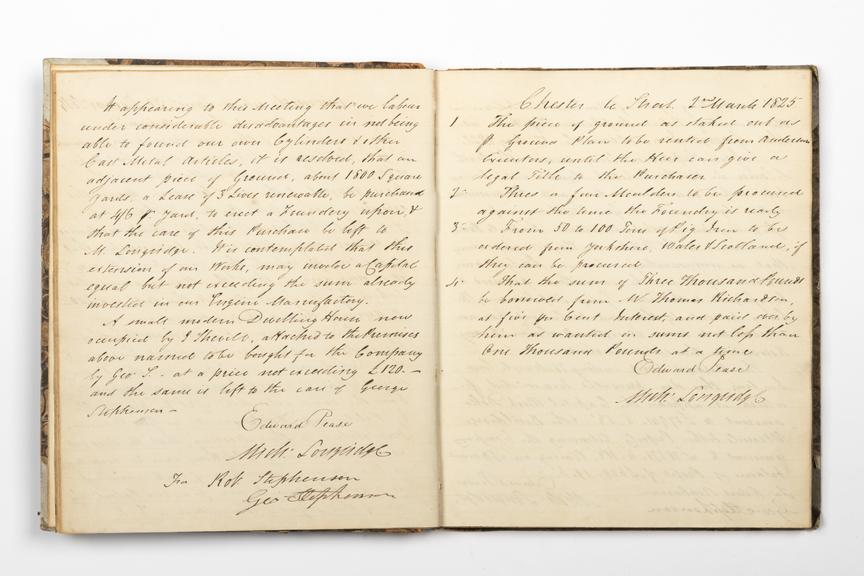 It appearing to this Meeting that we labour
under considerable disadvantages in not being
able to found our own Cylinders & other
Cast Metal Articles, it is resolved, that an
adjacent piece of Ground, about 1800 Square
yards, a Lease of 3 Lives renewable, be purchased
at 4/6 p. Yard, to erect a Foundery upon, &
that the care of this Purchase be left to
M. Longridge. It is contemplated that this
extension of our Works, may involve a Capital
equal but not exceeding the sum already
invested in our Engine Manufactory.
A small modern Dwelling House now
occupied by J attached to the Premises
above named to be bought for the Company
by Geo: S. at a price not exceeding £120.—
and the same is left to the care of George
Stephenson—
Edward Pease
Mich: Longridge
For Rob Stephenson
Geo Stephenson
Chester le Street. 2nd March 1825
1 The piece of ground as staked out as
p. Ground Plan to be rented from Anderson
Executors, until the Heir can give a
legal Title to the Purchaser
2 Three a four Moulders to be procured
against the time the Foundry is ready
3 From 50 to 100 Tons of Pig Iron to be
ordered from Yorkshire, Wales & Scotland, if
they can be procured
4 That the sum of Three Thousand Pounds
be borrowed from Mr Thomas Richardson,
at five per Cent Interest, and paid over by
him as wanted in sums not less than
One Thousand Pounds at a time
Edward Pease
Mich: Longridge